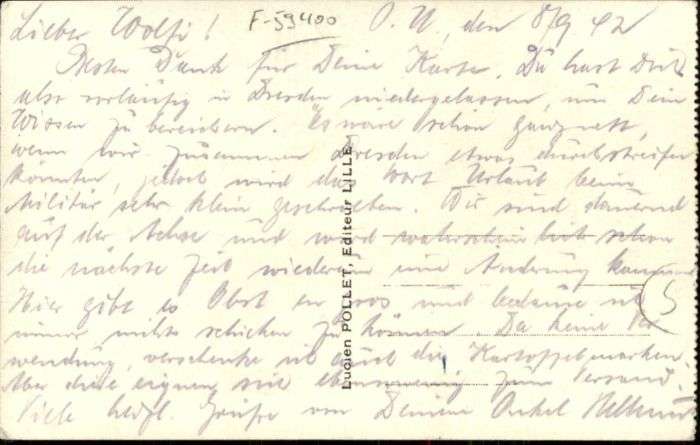 Lieber Wolfi! F-59400 O. U., den 8/9 42
Besten Dank für Deine Karte. Du hast Dich
also vorläufig in Dresden niedergelassen, um Dein
Wissen zu bereichern. Es wäre schon ganz nett,
wenn wir zusammen Dresden etwas durchstreifen
könnten, jedoch wird das Wort Urlaub beim
Militär sehr klein geschrieben. Wir sind dauernd
auf der Achse und wird wahrscheinlich schon
die nächste Zeit wiederum eine Änderung kommen
Hier gibt es Obst en gros und bedaure ich
immer, nichts schicken zu können. Da keine Ver
wendung, verschenke ich auch die Kartoffelmarken.
Aber diese eignen sich ebensowenig zum Versand.
Viele herzl. Grüße von Deinem Onkel Hellmut
Lucien POLLET, Editeur LILLE
5